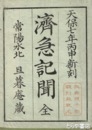 天保七年丙申新刻
濟急記聞 全
常陽水北 且暮庵蔵